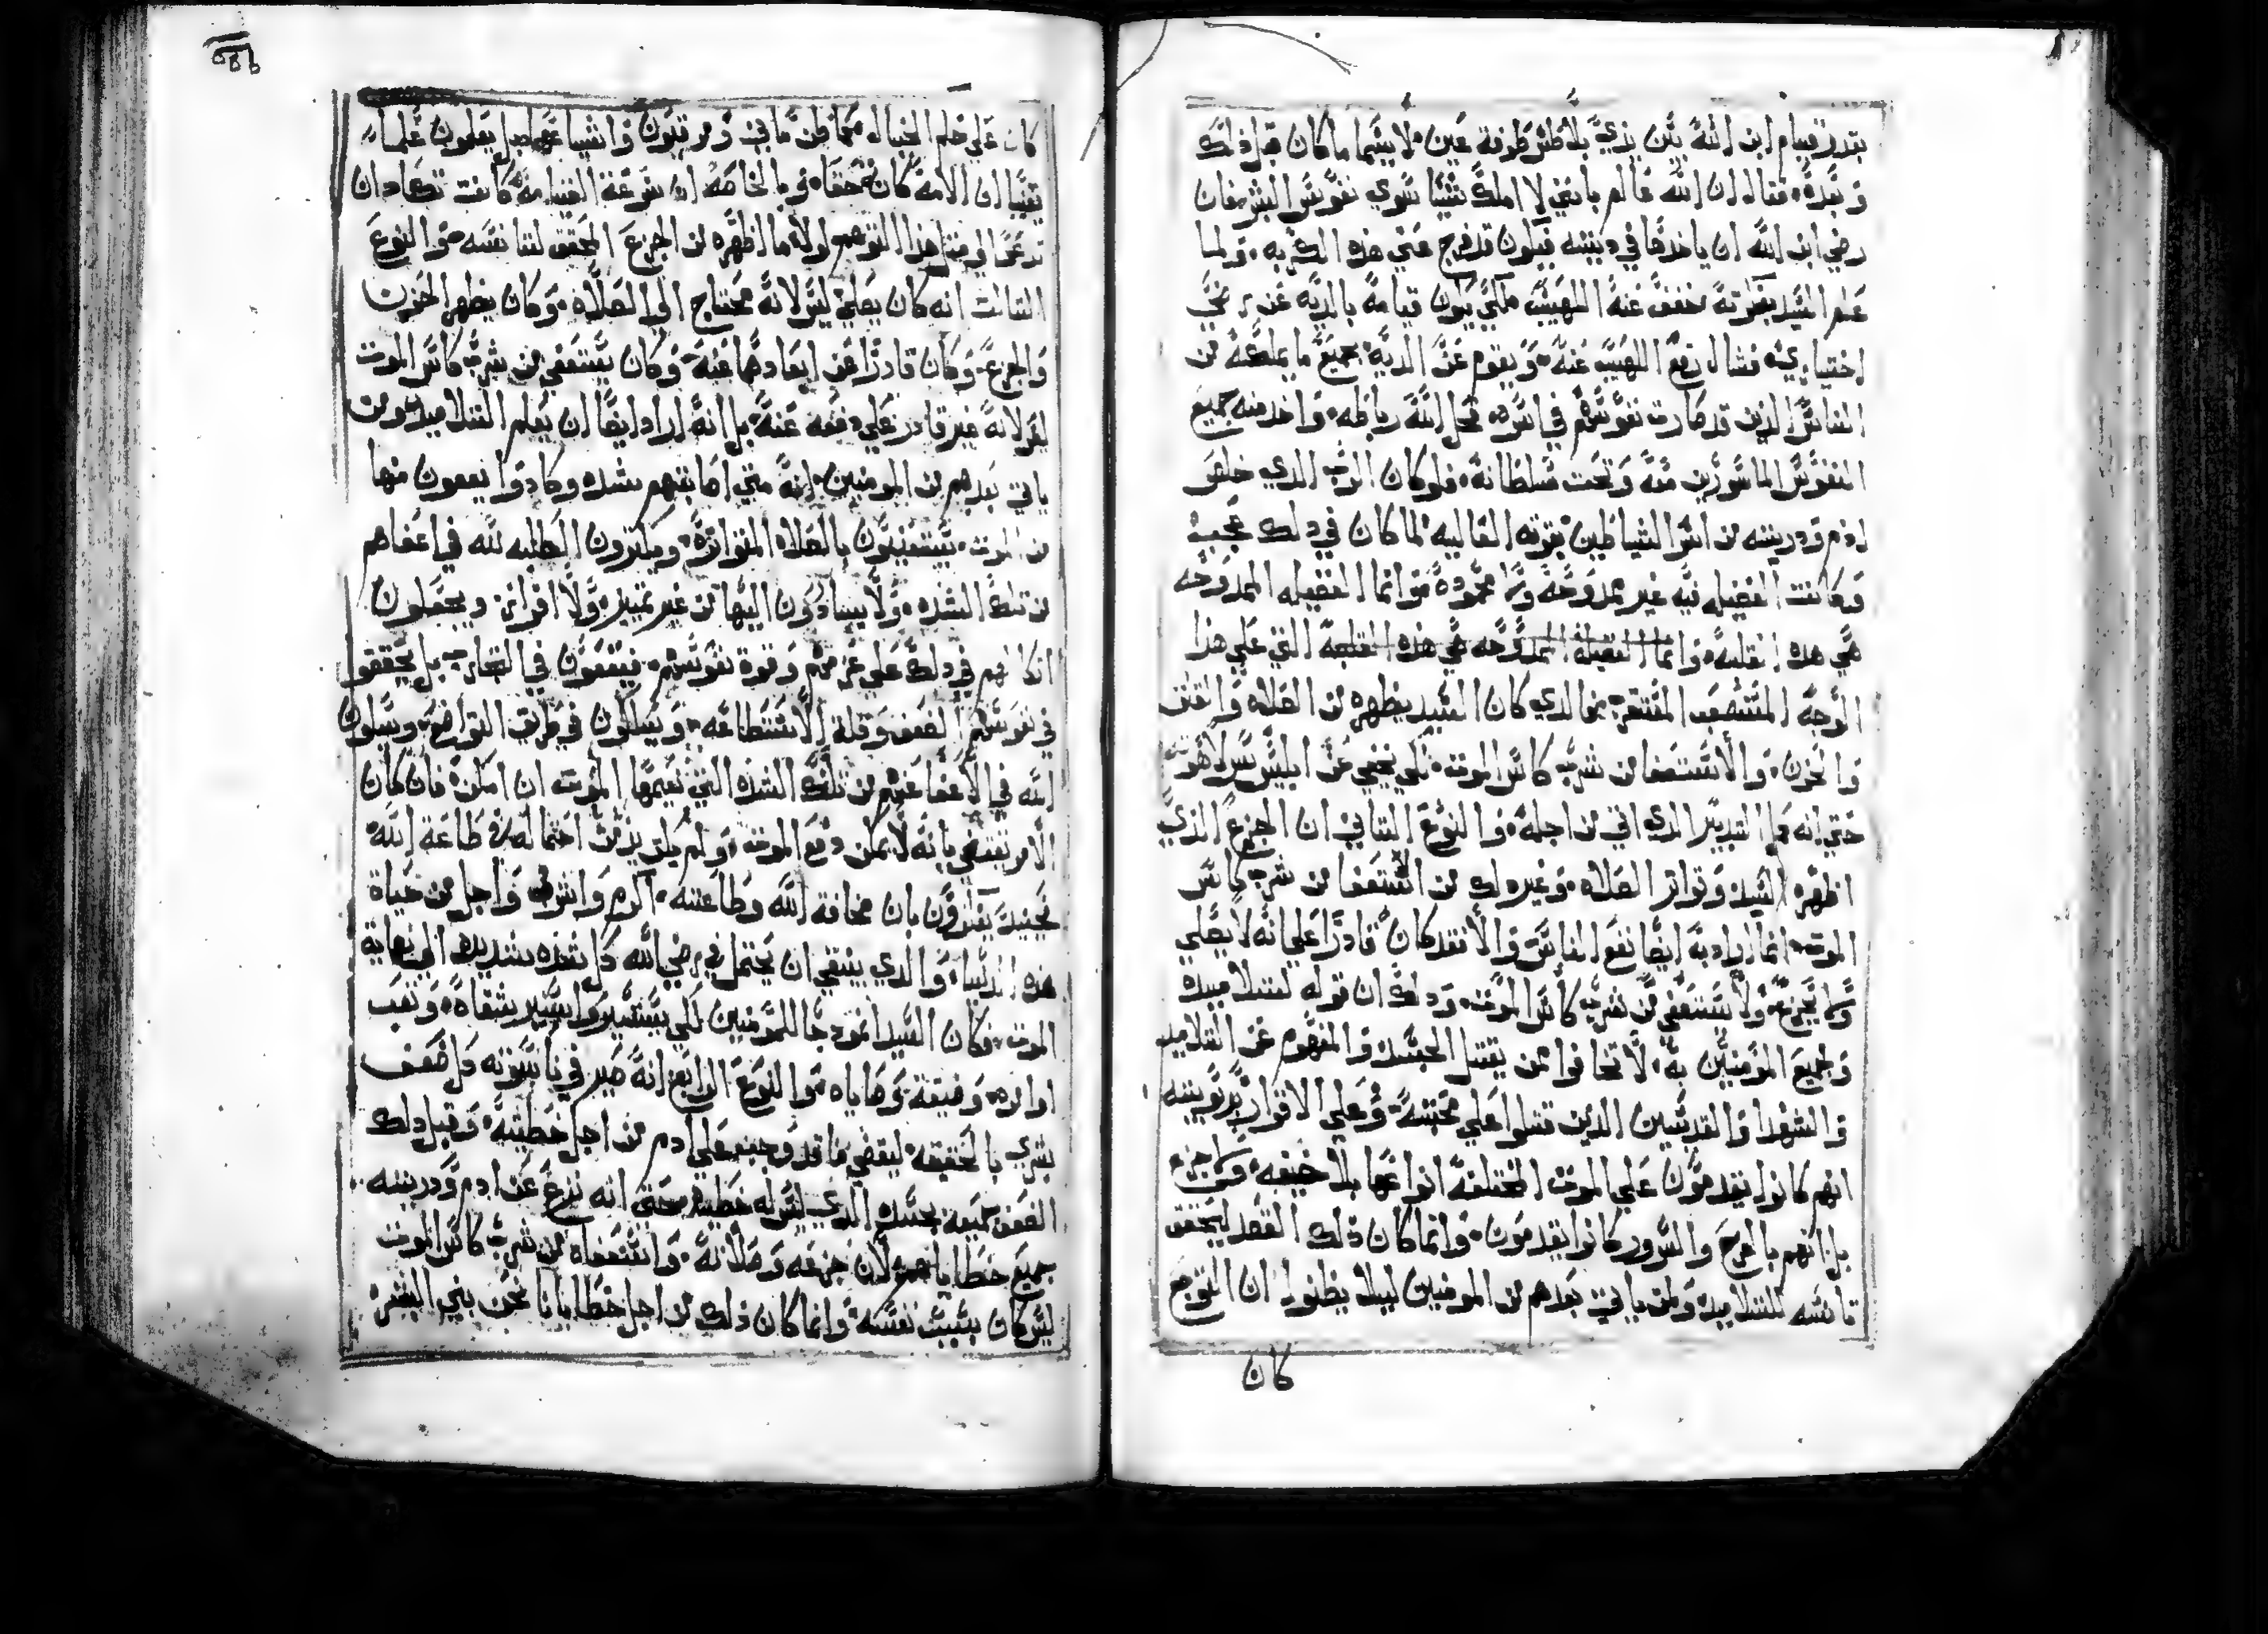 بقدر قيام ابن الله بين يدي بلاطش طرفة عين لا سيما ما كان قبل ذلك
وبعده فقال ان الله عالم بانني لا املك شيا سوي نفوس البشر فان
رضي ابن الله ان ياخدها في ديته فيكون قد فرج عني هده الكربه ولما
علم السيد بفكرته خفف عنه اللهيب لكي يكون قيامه بالديه عن رضي
اختياري فسال رفع اللهيب عنه ويقوم عن الديه بجميع ما يملكه من
الناس الدين قد صارت نفوسهم في اسره فحل الله رباطه واخد منه جميع
النفوس الماسورين معه وتحت سلطانه فلو كان الرب الدي خلق
ادم ودريته من اسر الشياطين بقوته الغالبه لما كان في دلك عجب
وكانت الفضيله فيه غير ممدوحه ولا محموده وانما الفضيله الممدوحه
هي هده الغلبه وانما الفضيلة الممدوحه هي هذه الغلبة التي علي هذا
الوجه المستصعب بما الدي كان السيد يظهره من الصلاه والقلق
والحزن والاستعفا من شرب كاس الموت لكي يخفي عن ابليس سر لاهوته
حتي انه التدبير الدي اتي من اجله والنوع التاني ان الجزع الذي
اظهره السيد وتواتر الصلاه وغير دلك من الاستعفا من شرب كاس
الموت انما اراد به ايضا نفع الناس والا فقد كان قادرا علي انه لا يصلي
ولا يجزع ولا يستعفي من شرب كاس الموت ودلك ان قوله لتلاميده
وجميع المومنين به لا تخافوا ممن يقتل الجسد والمفهوم عن التلاميد
والشهدا والقديسين الدين قتلوا علي محبته وعلي الاقرار بربوبيته
انهم كانوا يقدمون علي الموت المختلفة انواعها بلا خيفه ولا جزع
بل انهم بالفرح والسرور كانوا يقدمون وانما كان ذلك القصد ليحقق
تانسه للتلاميد ولمن ياتي بعدهم من المومنين ليلا يظنوا ان التوجع
كان
كان علي حلم الخيال كما ظن ماني ومرقيون واشياعهم بل يعلمون علما
يقينا ان الالام كان محققا وبالخاصه ان سرعة القيامه كانت تكاد ان
تدعوا الي مثل هذا التوهم لولا ما اظهره من الجزع المحقق لنا تانسه والنوع
التالت انه كان يصلي ليس لانه محتاج الي الصلاه وكان يظهر الحزن
والجزع وكان قادرا عن ابعادهما عنه وكان يستعفي من شرب كاس الموت
ليس لانه غير قادر علي دفعه عنه بل انه اراد ايضا ان يعلم التلاميد ومن
ياتي بعدهم من المومنين انه متي اصابتهم شده وكادوا يقعون منها
من الموت يستعينون بالصلاه المتواتره ويكترون الطلبه لله في اعفاهم
من تلك الشده ولا يبادرون اليها من غير تمييز ولا افراز ويجعلون
اتكالهم في دلك علي عزمهم وقوة نفوسهم فيقعون في التجارب بل يحققوا
في نفوسهم الضعف وقلة الاستطاعه ويسلكون في طريق التواضع ويسلون
الله في الاعفا عنهم من تلك الشده التي نعيمها الموت ان امكن فان كان
الامر يقتضي بانه لا يمكن دفع الموت ولم يكن بد من احتماله في طاعة الله
فحينيد يفكرون بان مخافة الله وطاعته اكرم واشرف واجل من حياة
هده الدنيا والدي ينبغي ان يحتمل في رضي الله كل شده شديده الي نهاية
الموت فكان السيد انمودجا للمومنين لكي يستسير واستير بشقاه وتعب
اوامره وحقيقة وصاياه والنوع الرابع انه صير في ناسوته كل ضعف
بشري بالحقيقه ليقضي ما قد وجب علي ادم من اجل خطيته وقبل دلك
الضعف جميعه بجسده الدي ليس له خطيه حتي انه نزع عن ادم ودريته
جميع خطاياهم لان جزعه وصلاته واستعفاه من شرب كاس الموت
ليس كان بسبب نفسه وانما كان ذلك من اجل خطايانا نحن بني البشر